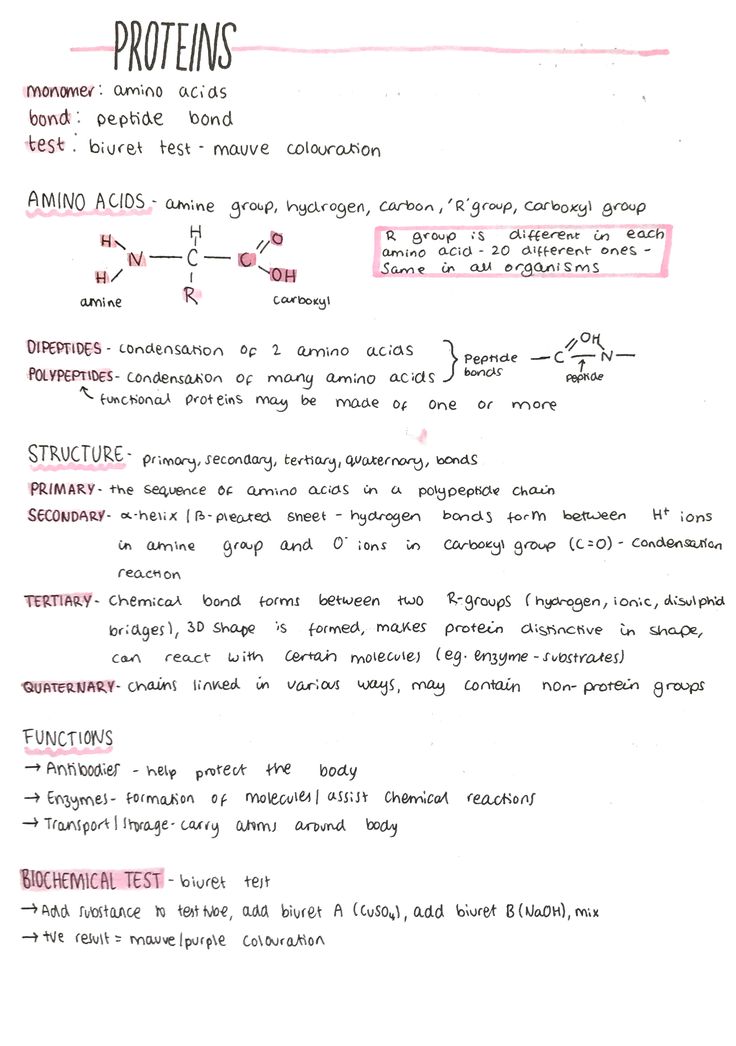 PROTEINS
monomer: amino acids
bond: peptide bond
test: biuret test - mauve colouration
AMINO ACIDS - amine group, hydrogen, carbon, 'R' group, carboxyl group
H H O
N — C — C
H R OH
amine carboxyl
R group is different in each
amino acid - 20 different ones -
same in all organisms
DIPEPTIDES - condensation of 2 amino acids
POLYPEPTIDES - condensation of many amino acids
Peptide
bonds
OH
— C — N —
peptide
functional proteins may be made of one or more
STRUCTURE - primary, secondary, tertiary, quaternary, bonds
PRIMARY - the sequence of amino acids in a polypeptide chain
SECONDARY - α-helix / β-pleated sheet - hydrogen bonds form between H⁺ ions
in amine group and O⁻ ions in carboxyl group (C=O) - condensation
reaction
TERTIARY - Chemical bond forms between two R-groups (hydrogen, ionic, disulphid
bridges), 3D shape is formed, makes protein distinctive in shape,
can react with certain molecules (eg. enzyme - substrates)
QUATERNARY - chains linked in various ways, may contain non-protein groups
FUNCTIONS
→ Antibodies - help protect the body
→ Enzymes - formation of molecules / assist chemical reactions
→ Transport / Storage - carry atoms around body
BIOCHEMICAL TEST - biuret test
→ Add substance to test tube, add biuret A (CuSO₄), add biuret B (NaOH), mix
→ +ve result = mauve/purple colouration